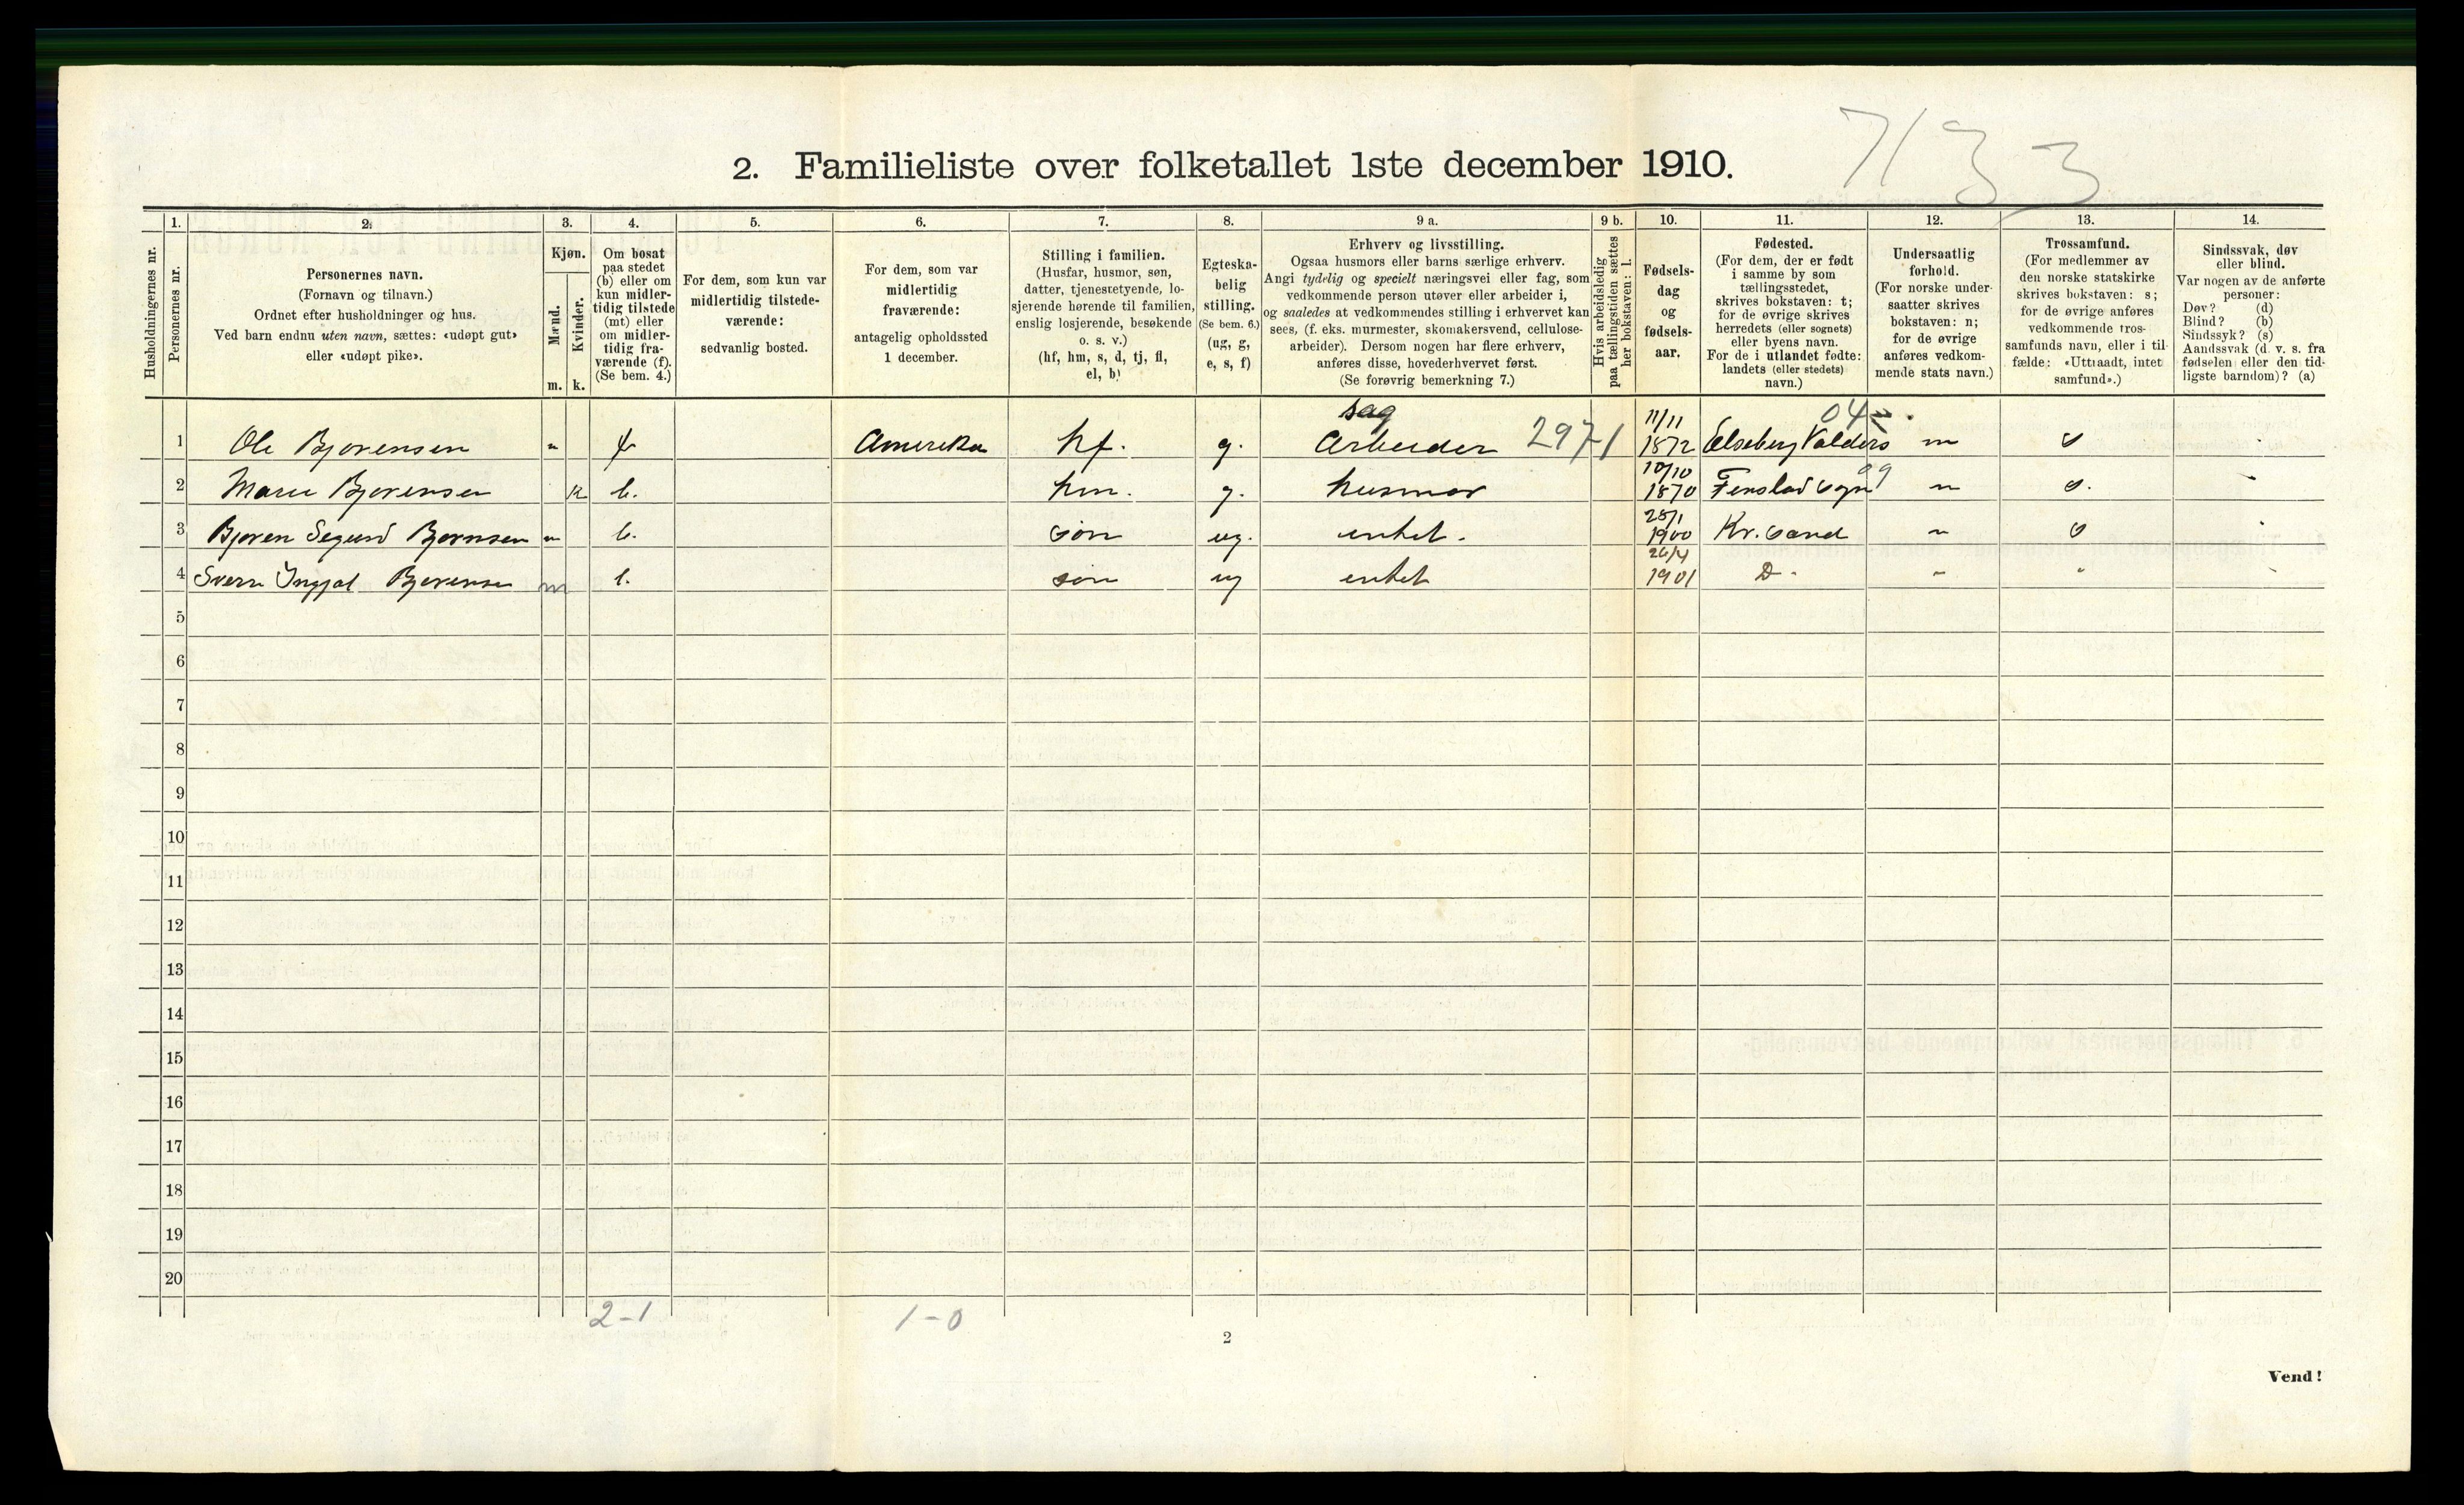 7133
2. Familieliste over folketallet 1ste december 1910.
Husholdningernes nr.
1.
Personernes nr.
2.
Personernes navn.
(Fornavn og tilnavn.)
Ordnet efter husholdninger og hus.
Ved barn endnu uten navn, sættes: «udøpt gut»
eller «udøpt pike».
3.
Kjøn.
Mænd.
Kvinder.
m. k.
4.
Om bosat
paa stedet
(b) eller om
kun midler-
tidig tilstede
(mt) eller
om midler-
tidig fra-
værende (f).
(Se bem. 4.)
5.
For dem, som kun var
midlertidig tilstede-
værende:
sedvanlig bosted.
6.
For dem, som var
midlertidig
fraværende:
antagelig opholdssted
1 december.
7.
Stilling i familien.
(Husfar, husmor, søn,
datter, tjenestetyende, lo-
sjerende hørende til familien,
enslig losjerende, besøkende
o. s. v.)
(hf, hm, s, d, tj, fl,
el, b)
8.
Egteska-
belig
stilling.
(Se bem. 6.)
(ug, g,
e, s, f)
9 a.
Erhverv og livsstilling.
Ogsaa husmors eller barns særlige erhverv.
Angi tydelig og specielt næringsvei eller fag, som
vedkommende person utøver eller arbeider i,
og saaledes at vedkommendes stilling i erhvervet kan
sees, (f. eks. murmester, skomakersvend, cellulose-
arbeider). Dersom nogen har flere erhverv,
anføres disse, hovederhvervet først.
(Se forøvrig bemerkning 7.)
9 b.
Hvis arbeidsledig
paa tællingstiden sættes
her bokstaven: l.
10.
Fødsels-
dag
og
fødsels-
aar.
11.
Fødested.
(For dem, der er født
i samme by som
tællingsstedet,
skrives bokstaven: t;
for de øvrige skrives
herredets (eller sognets)
eller byens navn.
For de i utlandet fødte:
landets (eller stedets)
navn.)
12.
Undersaatlig
forhold.
(For norske under-
saatter skrives
bokstaven: n;
for de øvrige
anføres vedkom-
mende stats navn.)
13.
Trossamfund.
(For medlemmer av
den norske statskirke
skrives bokstaven: s;
for de øvrige anføres
vedkommende tros-
samfunds navn, eller i til-
fælde: «Uttraadt, intet
samfund».)
14.
Sindssvak, døv
eller blind.
Var nogen av de anførte
personer:
Døv? (d)
Blind? (b)
Sindssyk? (s)
Aandssvak (d. v. s. fra
fødselen eller den tid-
ligste barndom)? (a)
sag 11/11 04
1 Ole Bjorensen m f Amerika hf. g. Arbeider 297 1 1872 Valders n s
10/10 99
2 Marie Bjorensen k b. hm. g. husmor 1870 n s.
25/1
3 Bjoren Segurd Bjornsen m b. søn ug. enket. 1900 Kr. sand n s
26/4
4 Sverre Ingjal Bjorensen m b. søn ug enket 1901 D - - "
5
6
7
8
9
10
11
12
13
14
15
16
17
18
19
20
2-1 1-0
2
Vend!